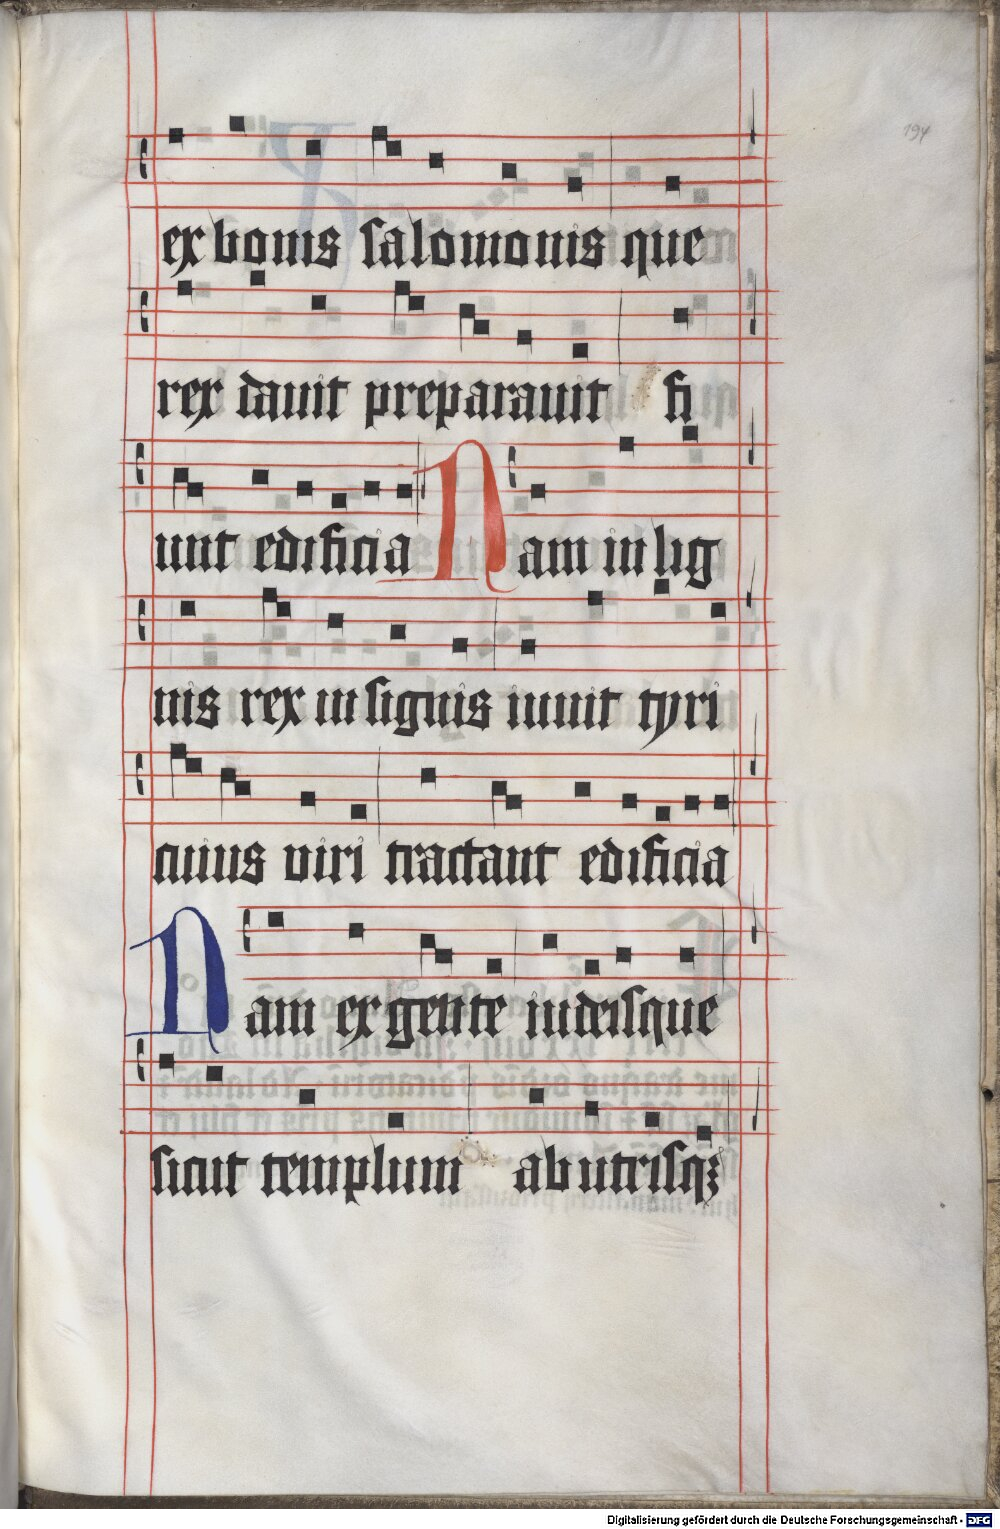 194
ex bonis salomonis que
rex dauit preparauit fi
unt edificia Nam in lig
nis rex insignis iuuit tyri
cuius viri tractant edificia
Nam ex gente iudeisque
sicut templum ab utrisqꝫ
Digitalisierung gefördert durch die Deutsche Forschungsgemeinschaft - DFG